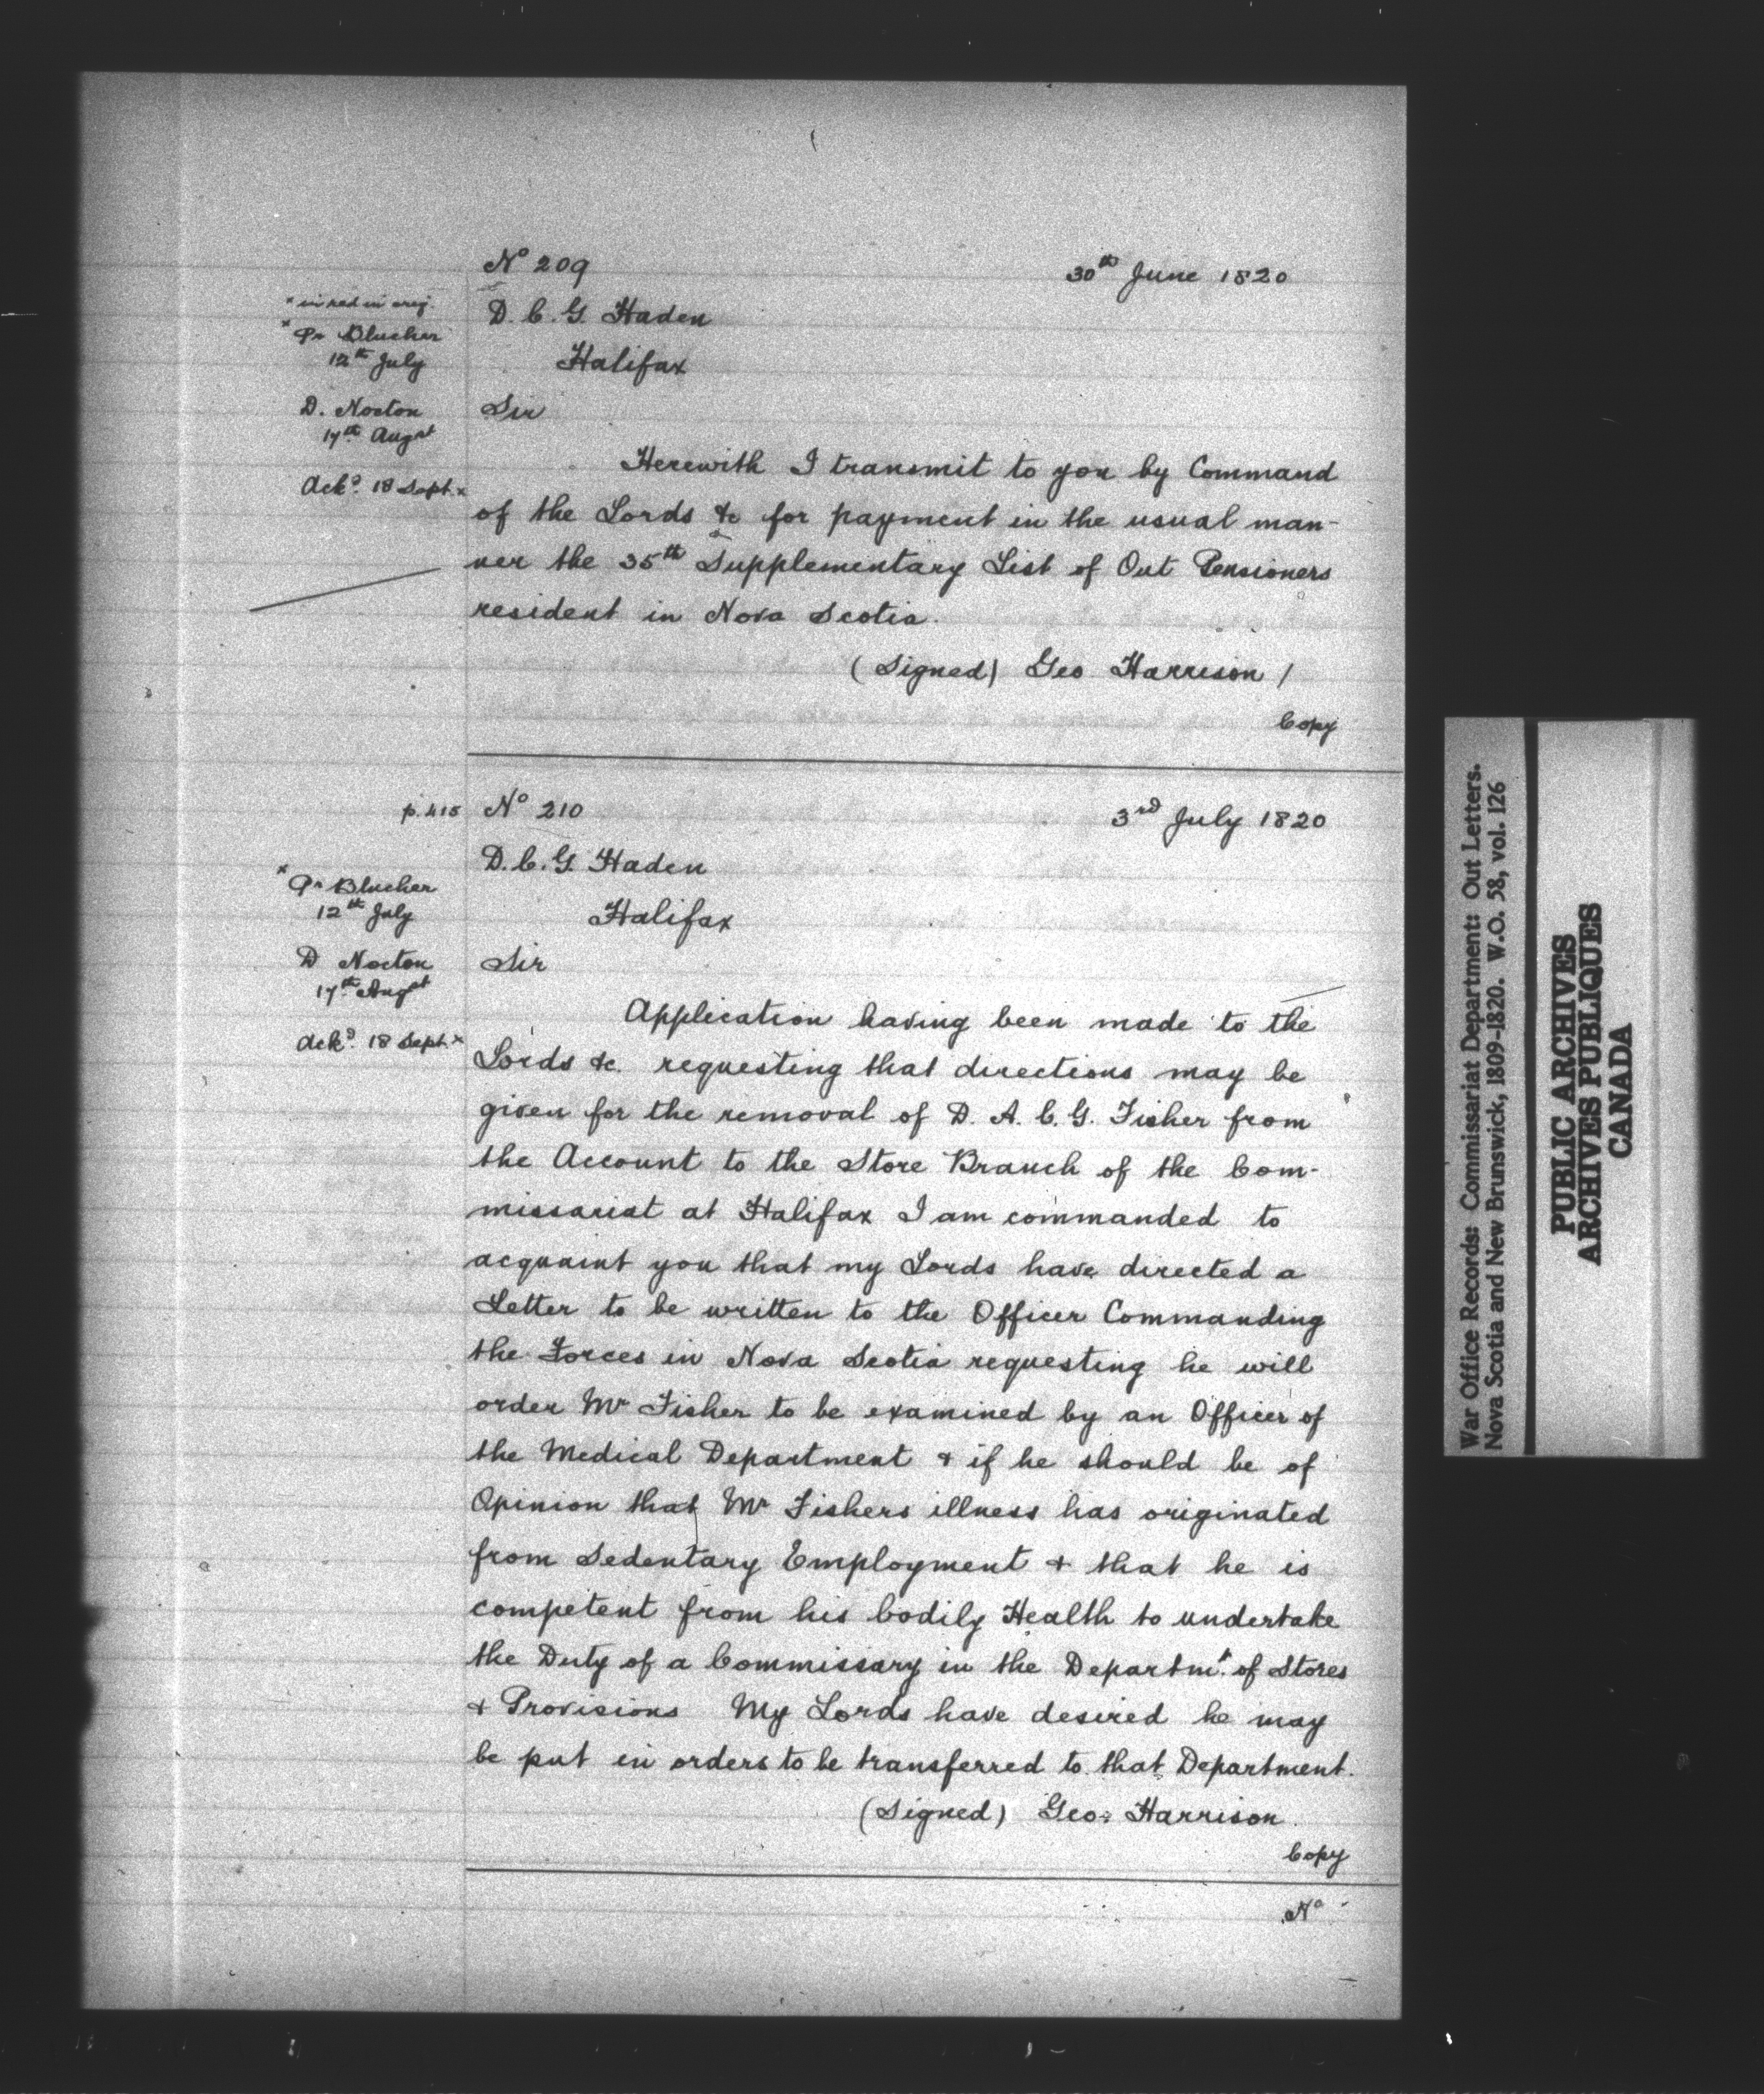 Nº 209 30th June 1820
* in red in orig.
D. C. G. Haden
* Pr Blucher
Halifax
12th July
D. Nocton
Sir
17th Augst
Herewith I transmit to you by Command
Ackd. 18 Sept. x
of the Lords &c for payment in the usual man-
ner the 35th Supplementary List of Out Pensioners
resident in Nova Scotia.
(Signed) Geo Harrison /
Copy
p. 415 Nº 210 3rd July 1820
D. C. G. Haden
* Pr Blucher
12th July
Halifax
D Nocton
Sir
17th Augst
Application having been made to the
Ackd. 18 Sept. x
Lords &c. requesting that directions may be
given for the removal of D. A. C. G. Fisher from
the Account to the Store Branch of the Com-
missariat at Halifax I am commanded to
acquaint you that my Lords have directed a
Letter to be written to the Officer Commanding
the Forces in Nova Scotia requesting he will
order Mr Fisher to be examined by an Officer of
the Medical Department & if he should be of
Opinion that Mr Fishers illness has originated
from Sedentary Employment & that he is
competent from his bodily Health to undertake
the Duty of a Commissary in the Departmt. of Stores
& Provisions My Lords have desired he may
be put in orders to be transferred to that Department.
(Signed) Geo: Harrison.
Copy
Nº
War Office Records: Commissariat Department: Out Letters.
Nova Scotia and New Brunswick, 1809-1820. W.O. 58, vol. 126
PUBLIC ARCHIVES
ARCHIVES PUBLIQUES
CANADA